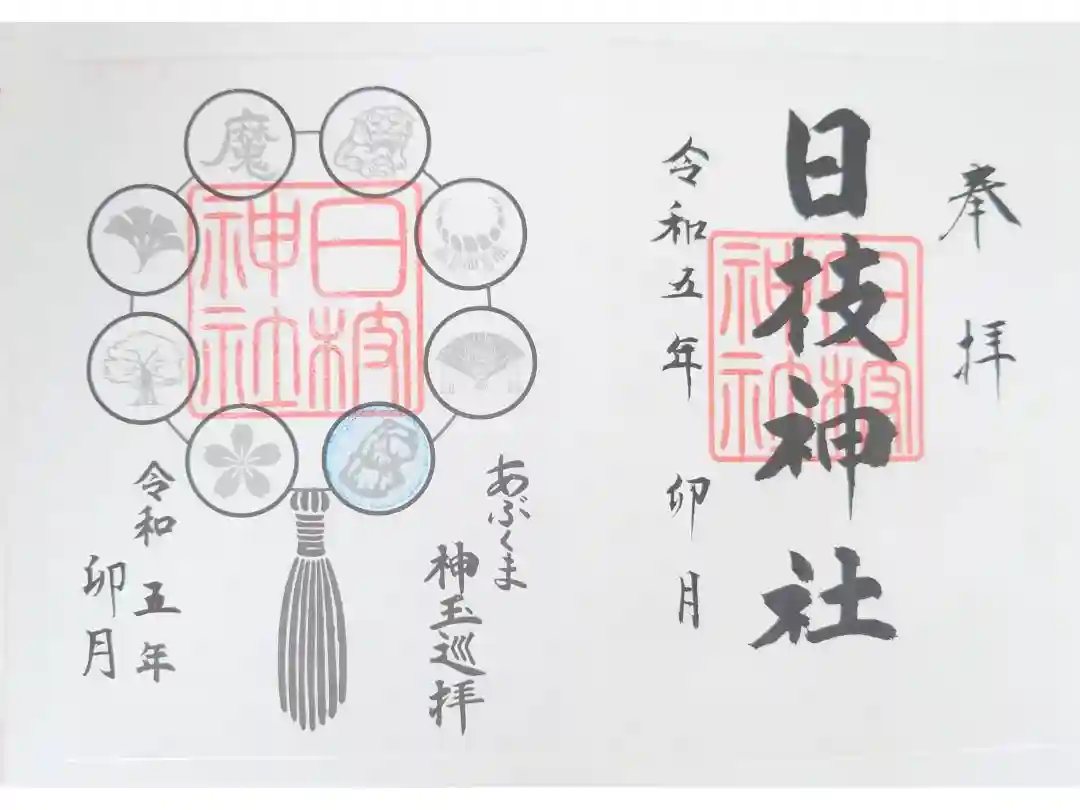 奉拝
日枝神社
日枝神社
令和五年 卯月
魔
日枝神社
あぶくま
神玉巡拝
令和五年
卯月